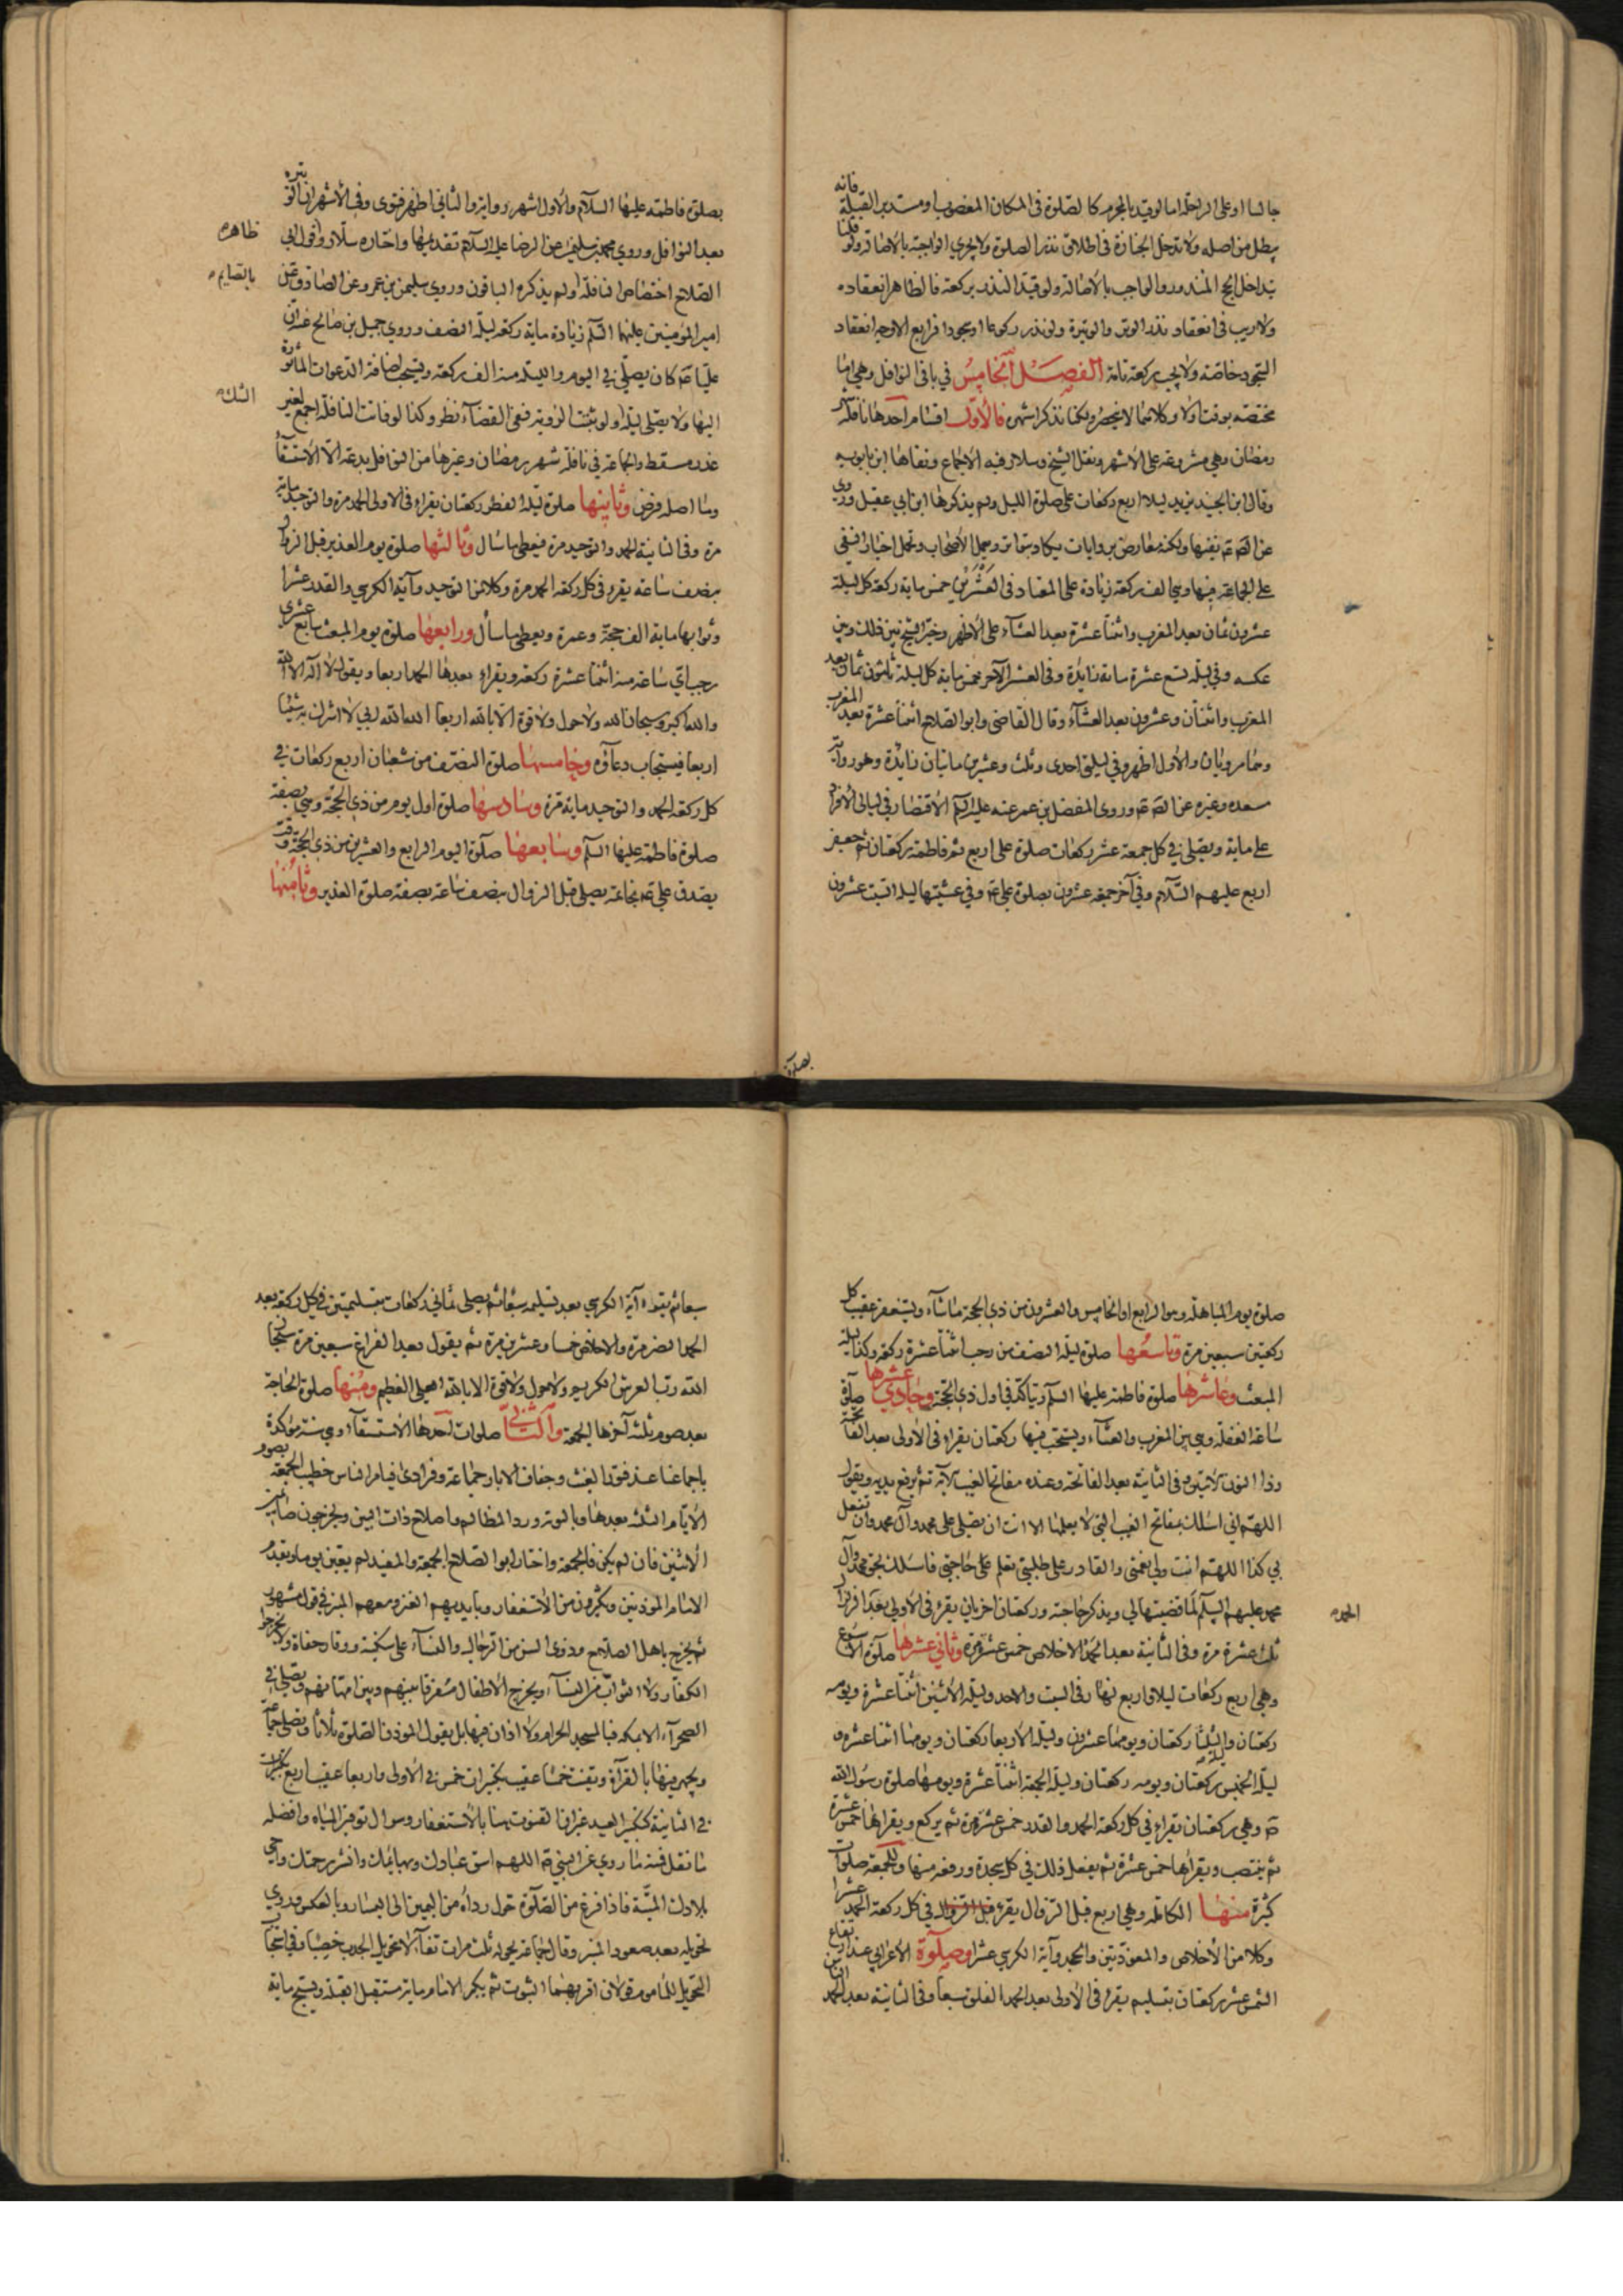 جالسا او على الراحلة اما لو قيد بالمحرم كالصلوة في المكان المغصوب او مستدبر القبلة فانه
يبطل من اصله ولا تدخل الجنازة في اطلاق نذر الصلوة ولا يجزي الواجبة بالاصالة ولو قلنا
بتداخل الحج المنذور والواجب بالاصالة ولو قيد النذر بركعة فالظاهر انعقاده
ولا ريب في انعقاد نذر الوتر والوتيرة ولو نذر ركوعا او سجودا فرابع الاوجه انعقاد
السجود خاصة ولا يجب ركعة تامة الفصل الخامس في باقي النوافل وهي اما
مختصة بوقت اولا وكلاهما لا ينحصر ولكنا نذكر اشهره فالاول اقسام احدها نافلة شهر
رمضان وهي مشروعة على الاشهر ونقل الشيخ وسلار فيه الاجماع ونفاها ابن بابويه
وقال ابن الجنيد يزيد ليلا اربع ركعات على صلوة الليل ولم يذكرها ابن ابي عقيل وروي
عن الص ع نفيها ولكنه معارض بروايات يكاد يتواتر وبعمل الاصحاب وتحمل اخبار النفي
على الجماعة فيها وهي الف ركعة زيادة على المعتاد في العشرين خمس ماية ركعة كل ليلة
عشرون ثمان بعد المغرب واثنتا عشرة بعد العشاء على الاظهر وخير الشيخ بين ذلك وبين
عكسه وفي ليلة تسع عشرة ماية زايدة وفي العشر الآخر خمس ماية كل ليلة ثلثون ثمان بعد
المغرب واثنتان وعشرون بعد العشاء وقال القاضي وابو الصلاح اثنتا عشرة بعد المغرب
وهما مرويان والاول اظهر وفي ليلتي احدى وثلث وعشرين مايتان زايدة وهو رواية
مسعدة وغيره عن الص ع وروى المفضل بن عمر عنه عليه السلم الاقتصار في ليالي الافراد
على ماية ويصلي في كل جمعة عشر ركعات صلوة علي اربع ثم فاطمة ركعتان ثم جعفر
اربع عليهم السلام وفي آخر جمعة عشرون بصلوة علي ع وفي عشيتها ليلة السبت عشرون
بصلوة
بصلوة فاطمة عليها السلام والاول اشهر رواية والثاني اظهر فتوى وفي الاشهر ان الوتيرة
بعد النوافل وروي محمد بن سليمن عن الرضا عليه السلام تقديمها واختاره سلار وقول ابي
ظاهر
الصلاح اختصاص النافلة ولم يذكره الباقون وروي سليمن بن عمرو عن الصادق عن
بالصايم
امير المؤمنين عليهما السلم زيادة ماية ركعة ليلة النصف وروي جميل بن صالح عنه ان
عليا ع كان يصلي في اليوم والليلة منه الف ركعة ويستحب اضافة الدعوات الماثورة
اليها ولا يصلي ليلة ولو ثبتت الرؤية ففي القضاء نظر وكذا لو فاتت النافلة اجمع لغير
الشك
عذر مسقط والجماعة في نافلة شهر رمضان وغيرها من النوافل بدعة الا الاستسقاء
وما اصله فرض وثانيها صلوة ليلة الفطر ركعتان يقراء في الاولى الحمد مرة والتوحيد ماية
مرة وفي الثانية الحمد والتوحيد مرة فيعطى ما سال وثالثها صلوة يوم الغدير قبل الزوال
بنصف ساعة يقرء في كل ركعة الحمد مرة وكلا من التوحيد وآية الكرسي والقدر عشرا
وثوابها ماية الف حجة وعمرة ويعطى ما سأل ورابعها صلوة يوم المبعث سابع عشري
رجب اي ساعة منه اثنتا عشرة ركعة ويقراء بعدها الحمد اربعا ويقول لا اله الا الله
والله اكبر وسبحان الله ولا حول ولا قوة الا بالله اربعا الله الله ربي لا اشرك به شيئا
اربعا فيستجاب دعاؤه وخامسها صلوة النصف من شعبان اربع ركعات في
كل ركعة الحمد والتوحيد ماية مرة وسادسها صلوة اول يوم من ذي الحجة وهي بصفة
صلوة فاطمة عليها السلم وسابعها صلوة اليوم الرابع والعشرين من ذي الحجة وقت
تصدق علي ع بخاتمه يصلي قبل الزوال بنصف ساعة بصفة صلوة الغدير وثامنها
صلوة يوم المباهلة وهو الرابع او الخامس والعشرون من ذي الحجة ما شاء ويستغفر عقيب كل
ركعتين سبعين مرة وتاسعها صلوة ليلة النصف من رجب اثنتا عشرة ركعة وكذا ليلة
المبعث وعاشرها صلوة فاطمة عليها السلم وتتأكد في اول ذي الحجة وحادي عشرها صلوة
ساعة الغفلة وهي بين المغرب والعشاء ويستحب فيها ركعتان يقراء في الاولى بعد الفاتحة
وذا النون الايتين وفي الثانية بعد الفاتحة وعنده مفاتح الغيب الآية ثم يرفع يديه ويقول
اللهم اني اسئلك بمفاتح الغيب التي لا يعلمها الا انت ان تصلي على محمد وآل محمد وان تفعل
بي كذا اللهم انت ولي نعمتي والقادر على طلبتي تعلم على حاجتي فاسئلك بحق محمد وآل
محمد عليهم السلم لما قضيتها لي ويذكر حاجته وركعتان اخريان يقرء في الاولى بعد الزلزال
الحمد
ثلث عشرة مرة وفي الثانية بعد الحمد الاخلاص خمس عشرة مرة وثاني عشرها صلوة الاسبوع
وهي اربع ركعات ليلا واربع نهارا في السبت والاحد وليلة الاثنين اثنتا عشرة ويومه
ركعتان وليلة الثلثا ركعتان ويومها عشرون وليلة الاربعا ركعتان ويومها اثنتا عشرة و
ليلة الخميس ركعتان ويومه ركعتان وليلة الجمعة اثنتا عشرة ويومها صلوة رسول الله
ص وهي ركعتان يقراء في كل ركعة الحمد والقدر خمس عشرة مرة ثم يركع ويقرأها خمس عشرة
ثم ينتصب ويقرأها خمس عشرة ثم يفعل ذلك في كل سجدة ورفعه منها وللجمعة صلوات
كثيرة منها الكاملة وهي اربع قبل الزوال يقرء في كل ركعة الحمد عشرا
وكلا من الاخلاص والمعوذتين والجحد وآية الكرسي عشرا وصلوة الاعرابي عند ارتفاع
الشمس عشر ركعتان بتسليم يقرء في الاولى بعد الحمد الفلق سبعا وفي الثانية بعد الحمد الناس
سبعا ثم يقراء آية الكرسي بعد تسليمه سبعا ثم يصلي ثماني ركعات بتسليمتين في كل ركعة بعد
الحمد النصر مرة والاخلاص خمسا وعشرين مرة ثم يقول بعد الفراغ سبعين مرة سبحان
الله رب العرش الكريم ولا حول ولا قوة الا بالله العلي العظيم ومنها صلوة الحاجة
بعد صوم ثلثه آخرها الجمعة والثاني صلوات احدها الاستسقاء وهي سنة مؤكدة
باجماعنا عند فقد الغيث وجفاف الابار جماعة وفرادى فيامر الناس خطيب الجمعة بصوم
الايام الثلثة بعدها وبالتوبة ورد المظالم واصلاح ذات البين ويخرجون صائمين
الاثنين فان لم يكن فالجمعة واختار ابو الصلاح الجمعة والمفيد لم يعين يوما ويقدم
الامام المؤذنين ويكثرون من الاستغفار وبايديهم العنز ومعهم المنبر في قول مشهور
ثم يخرج باهل الصلاح وذوي السن من الرجال والنساء على سكينة ووقار حفاة ولا يخرجوا
الكفار ولا الشواب من النساء ويخرج الاطفال متفرقا بينهم وبين امهاتهم ويصلي في
الصحراء الا بمكة فبالمسجد الحرام ولا اذان فيها بل يقول المؤذن الصلوة ثلاثا ويصلي جماعة
ويجهر فيها بالقرأة ويقنت خمسا عقيب تكبيرات خمس في الاولى واربعا عقيب اربع تكبيرات
في الثانية كتكبير العيد غير ان القنوت هنا بالاستغفار وسوال توفير المياه وافضله
ما نقل فمنه ما روي عن النبي ص اللهم اسق عبادك وبهايمك وانشر رحمتك واحي
بلادك الميتة فاذا فرغ من الصلوة حول رداه من اليمين الى اليسار وبالعكس وروي
تحويله بعد صعود المنبر وقال جماعة يحوله ثلث مرات تفألا بتحويل الجدب خصبا وفي استحباب
التحويل للماموم قولان اقربهما الثبوت ثم يكبر الامام ماية مستقبل القبلة ويسبح ماية